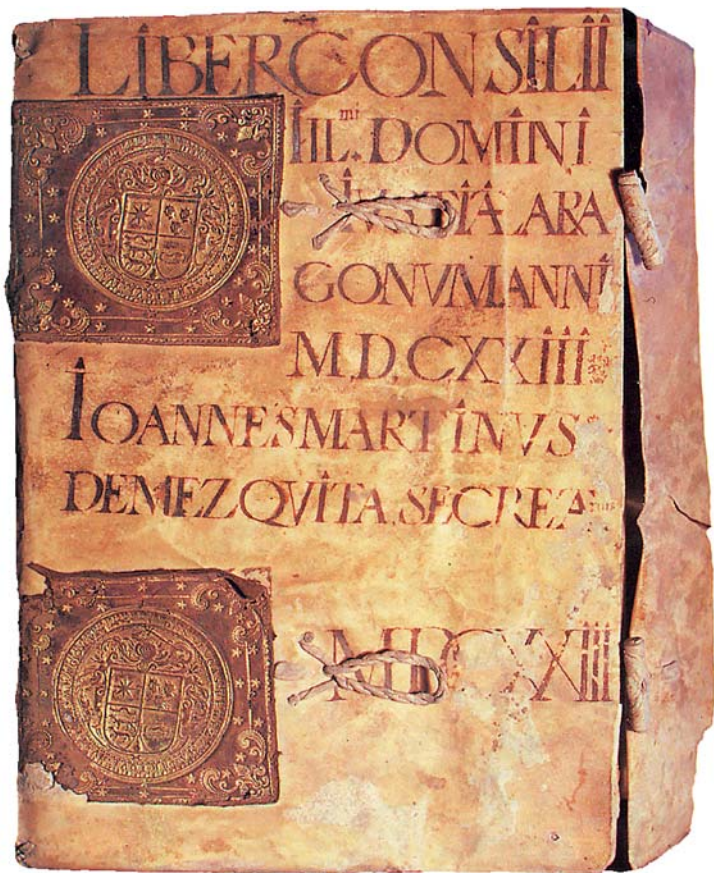 LIBER CONSILII
IIL.mi DOMINI
ARA
GONVM ANNI
M.D.CXXIII
IOANNES MARTINVS
DE MEZQVITA. SECREA
MDCXXIII